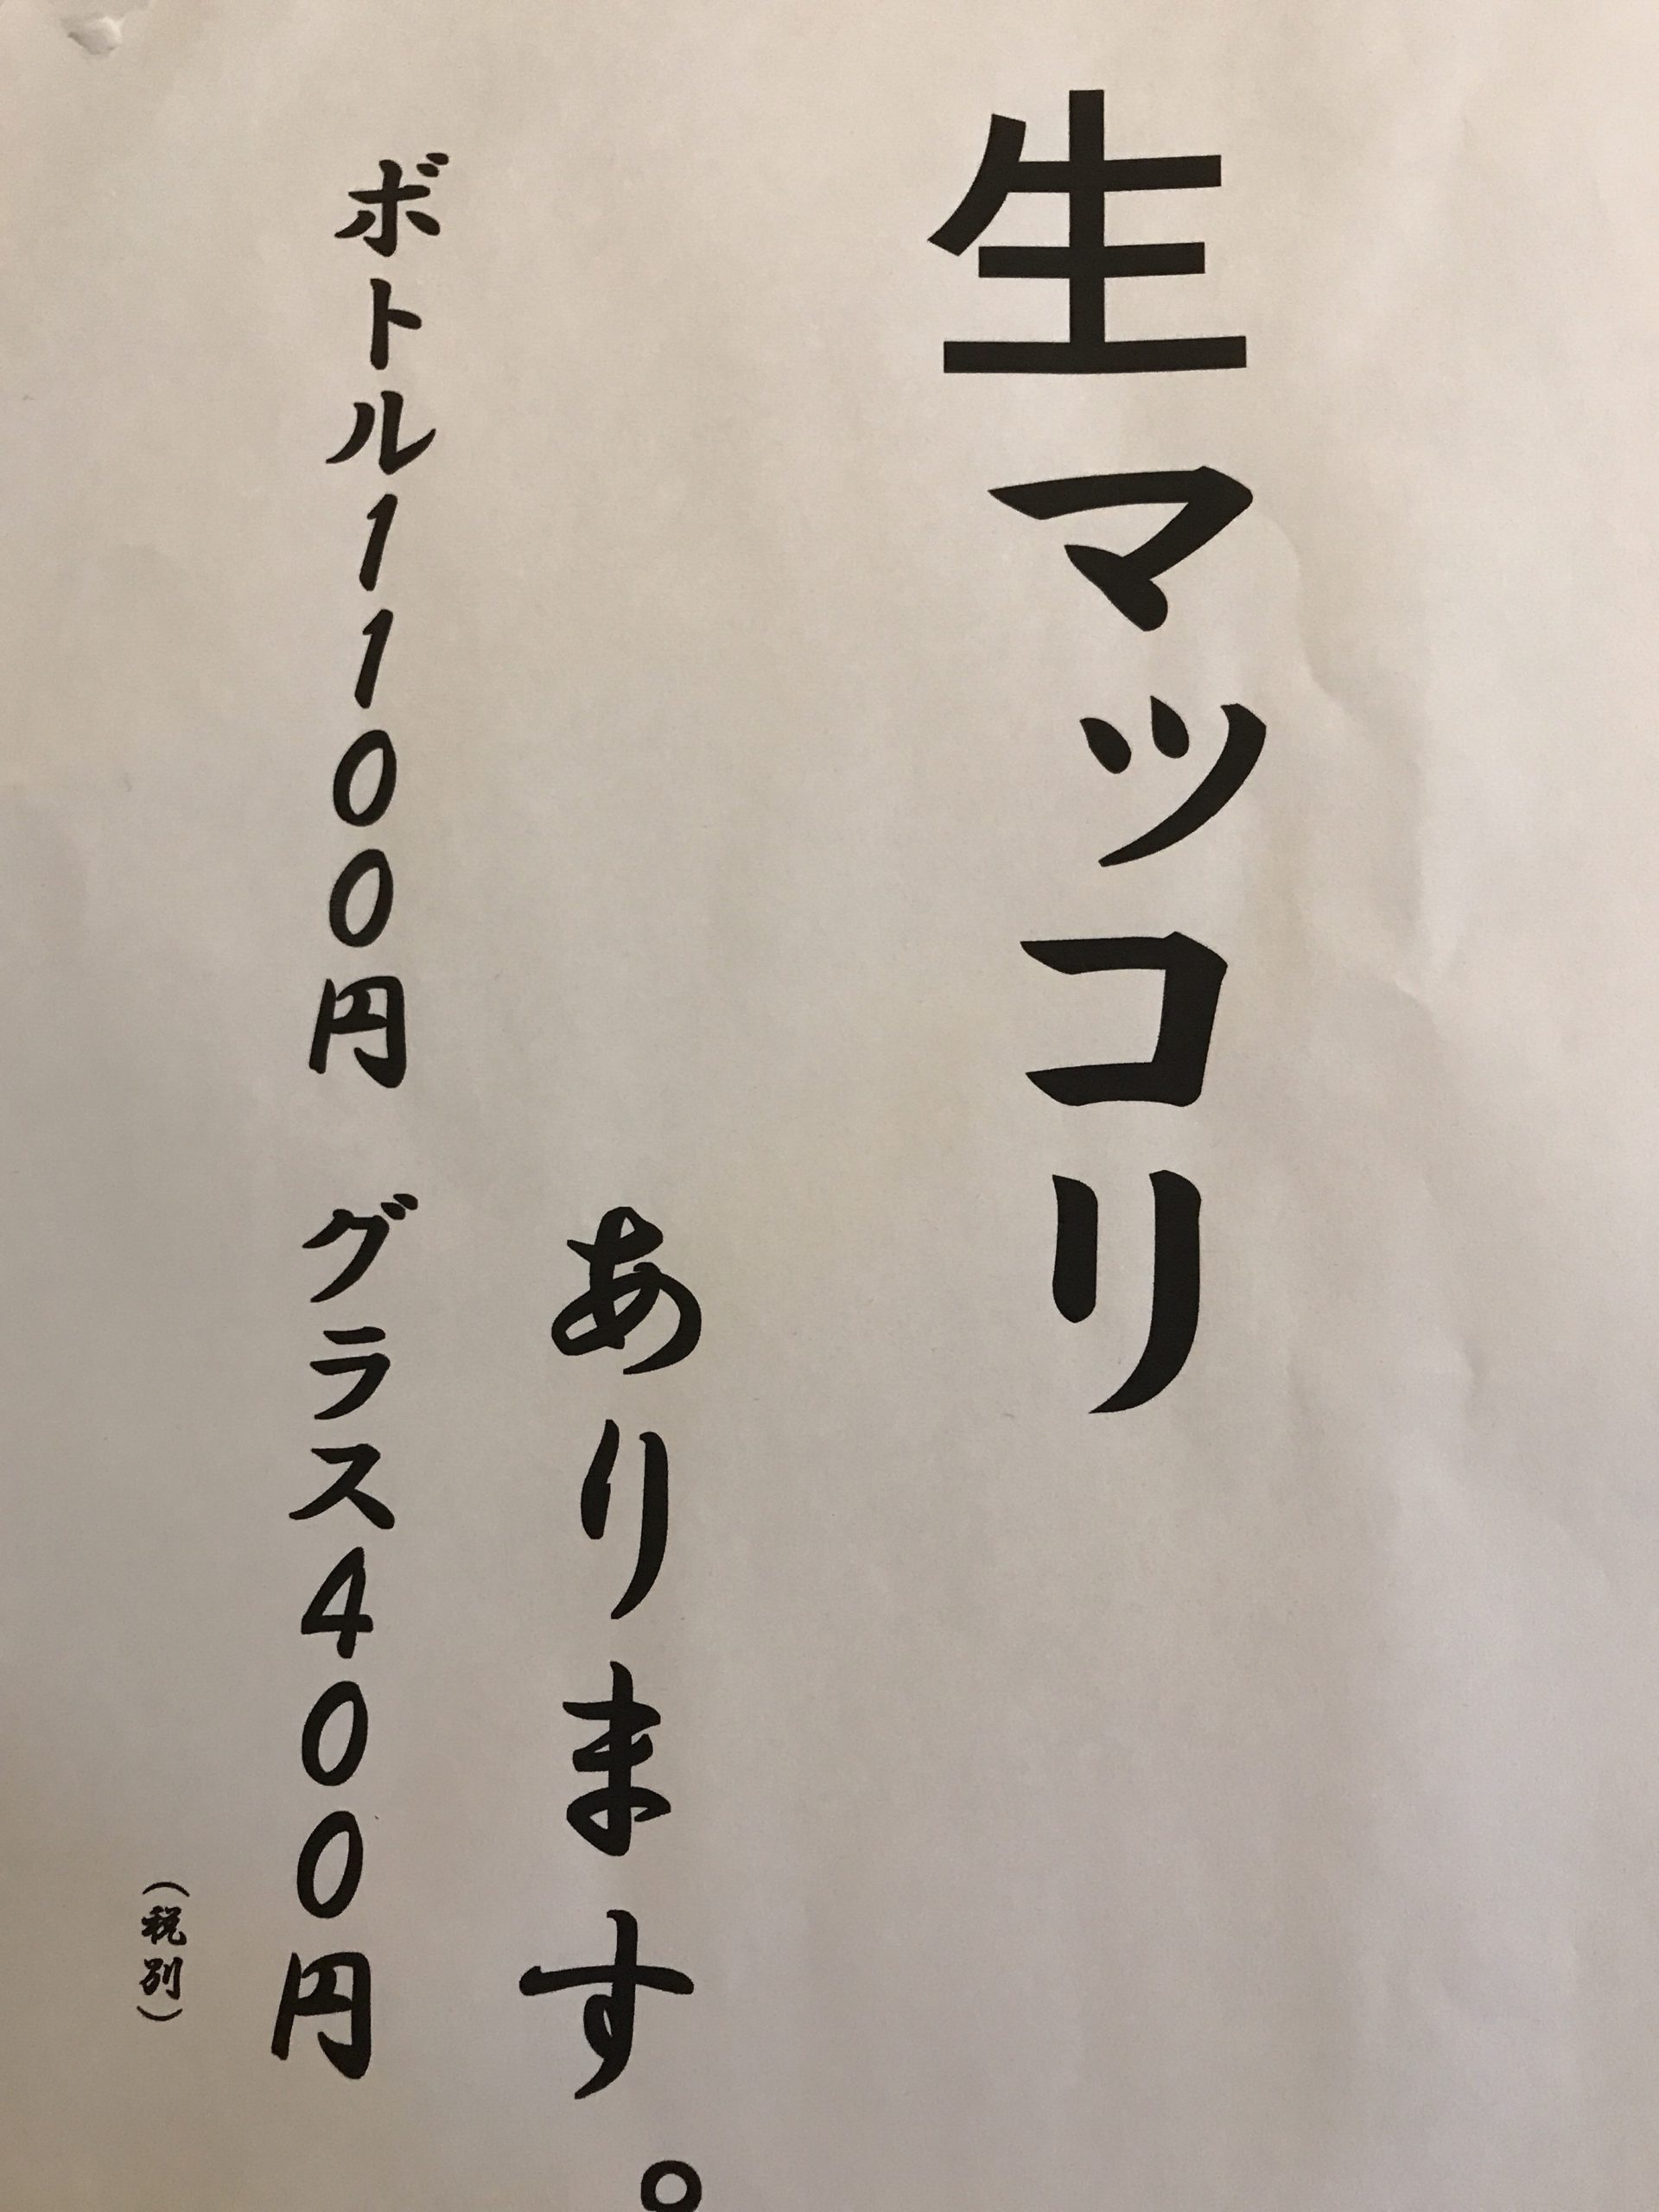 生マッコリ
あります。
ボトル1100円 グラス400円
(税別)